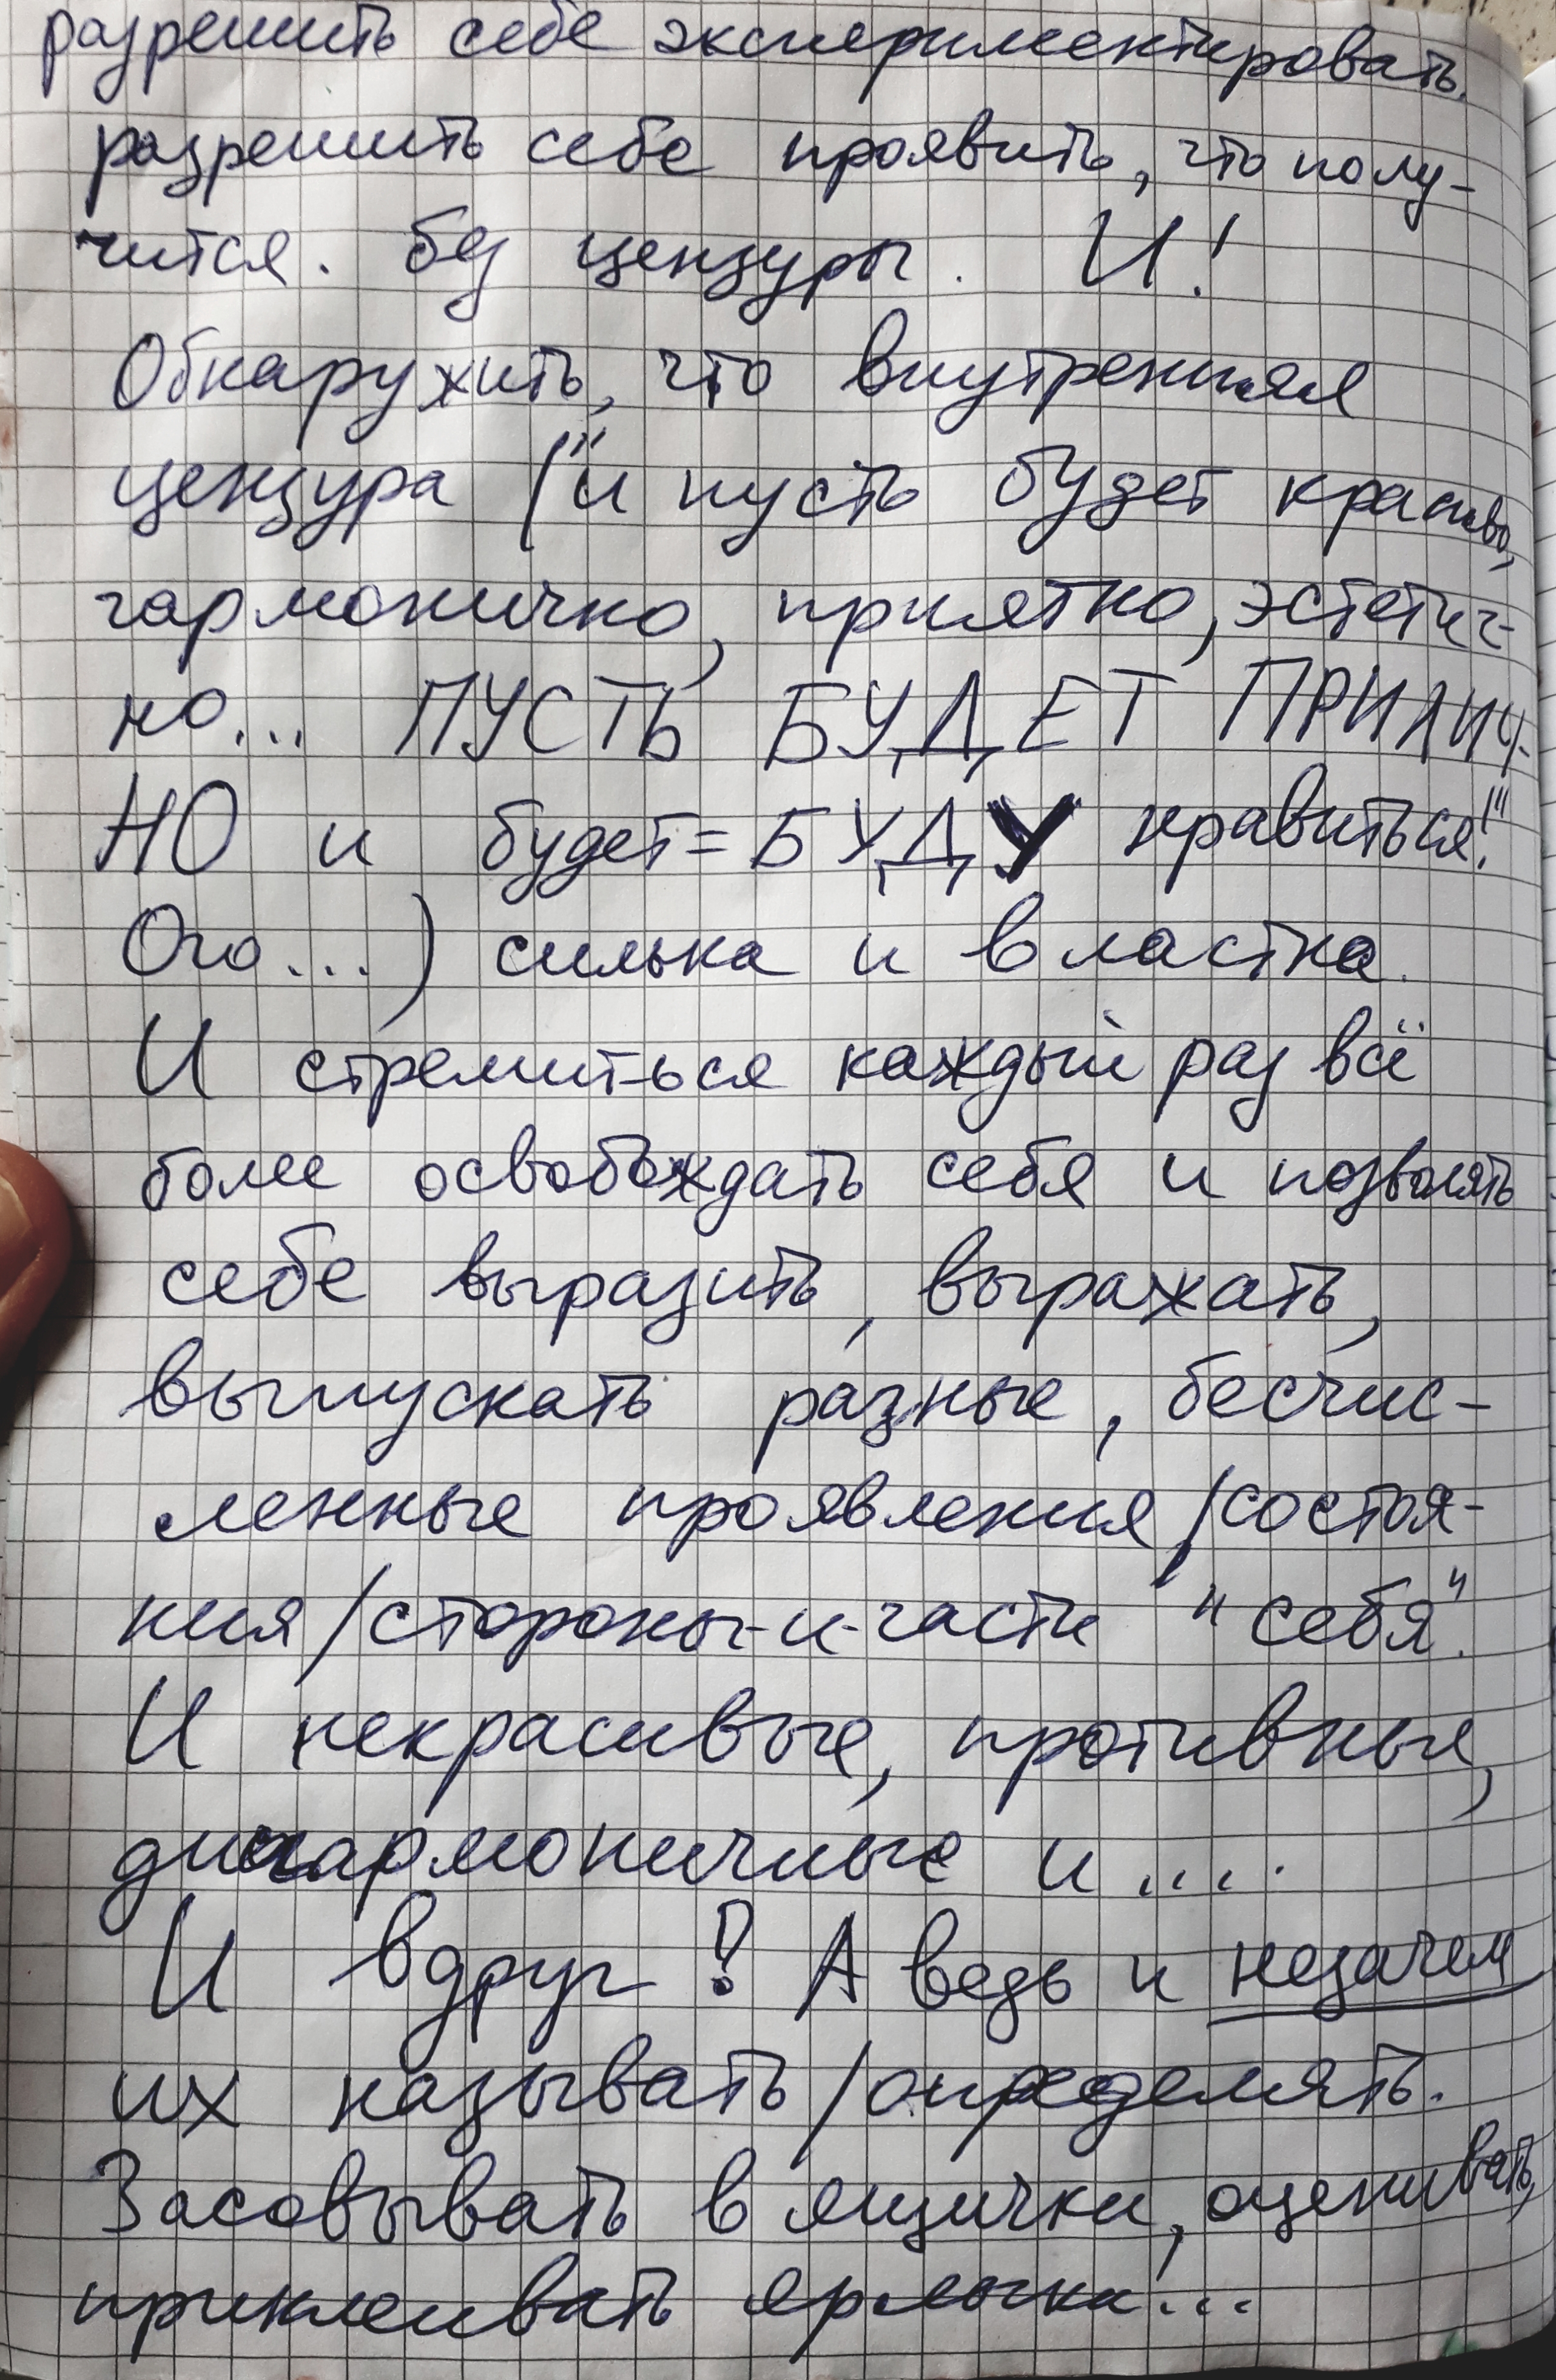 разрешить себе экспериментировать,
разрешить себе проявить, что полу-
чится. без цензуры. И!
Обнаружить, что внутренняя
цензура ("и пусть будет красиво,
гармонично, приятно, эстетич-
но... ПУСТЬ БУДЕТ ПРИЛИЧ-
НО и будет=БУДУ нравиться!"
Ого...) сильна и властна.
И стремиться каждый раз всё
более освобождать себя и позволять
себе выразить, выражать,
выпускать разные, бесчис-
ленные проявления/состоя-
ния/стороны-и-части "себя".
И некрасивые, противные,
дисгармоничные и....
И вдруг? А ведь и незачем
их называть/определять.
Засовывать в ящички, оценивать,
приклеивать ярлычки...